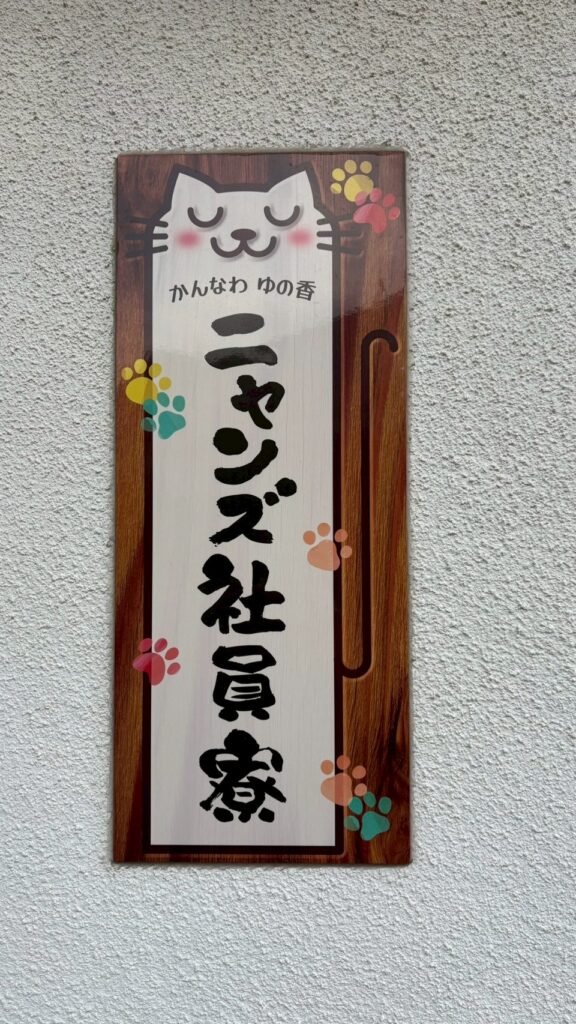 かんなわ ゆの香
ニャンズ社員寮